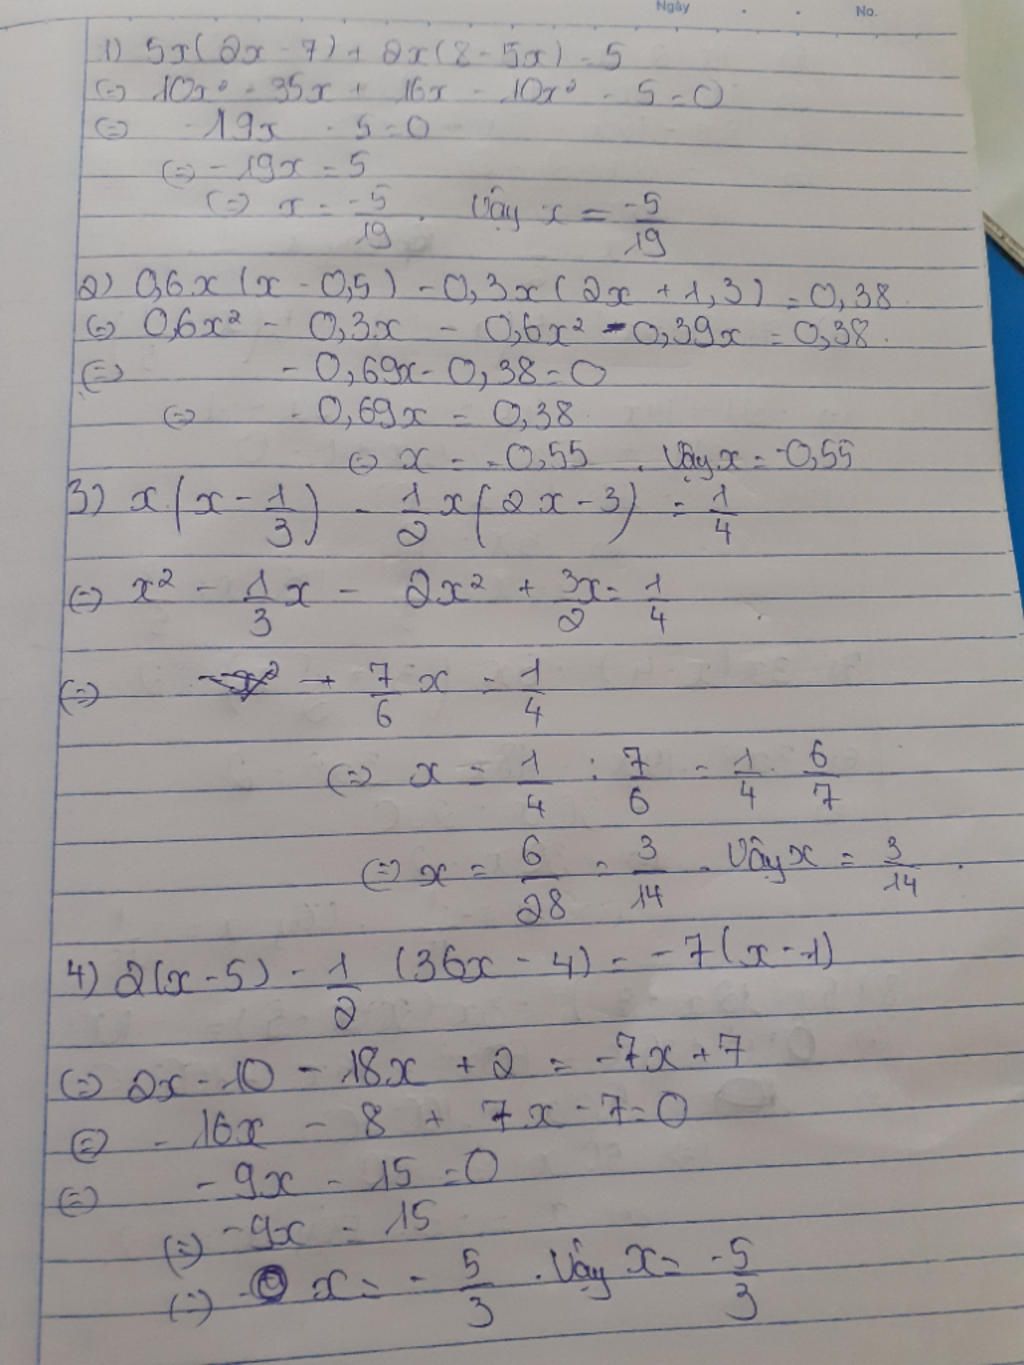 Ngày . . No.
1) 5x(2x - 7) + 2x(8 - 5x) = 5
(=) 10x² - 35x + 16x - 10x² - 5 = 0
(=) -19x - 5 = 0
(=) -19x = 5
(=) x = -5/19 . Vậy x = -5/19
2) 0,6x(x - 0,5) - 0,3x(2x + 1,3) = 0,38
(=) 0,6x² - 0,3x - 0,6x² - 0,39x = 0,38.
(=) - 0,69x - 0,38 = 0
(=) - 0,69x = 0,38
(=) x = -0,55 . Vậy x = -0,55
3) x(x - 1/3) - 1/2 x(2x - 3) = 1/4
(=) x² - 1/3 x - 2x² + 3x/2 = 1/4
(=) -x² + 7/6 x = 1/4
(=) x = 1/4 : 7/6 = 1/4 . 6/7
(=) x = 6/28 = 3/14 . Vậy x = 3/14 .
4) 2(x - 5) - 1/2 (36x - 4) = -7(x - 1)
(=) 2x - 10 - 18x + 2 = -7x + 7
(=) - 16x - 8 + 7x - 7 = 0
(=) - 9x - 15 = 0
(=) - 9x = 15
(=) x = - 5/3 . Vậy x = -5/3